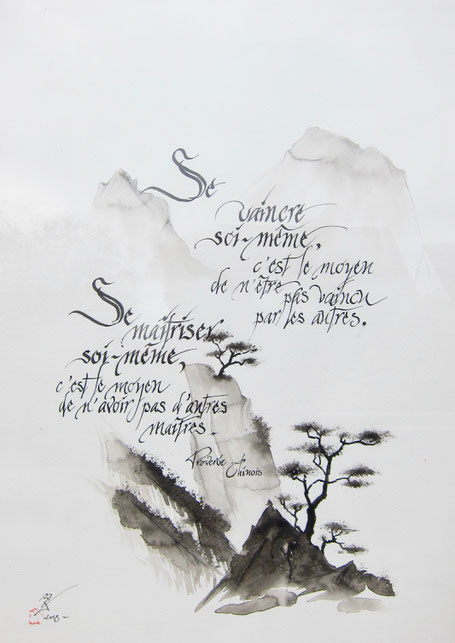 Se
vaincre
soi-même,
c'est le moyen
de n'être pas vaincu
par les autres.
Se
maîtriser
soi-même,
c'est le moyen
de n'avoir pas d'autres
maîtres.
Proverbe Chinois
2018